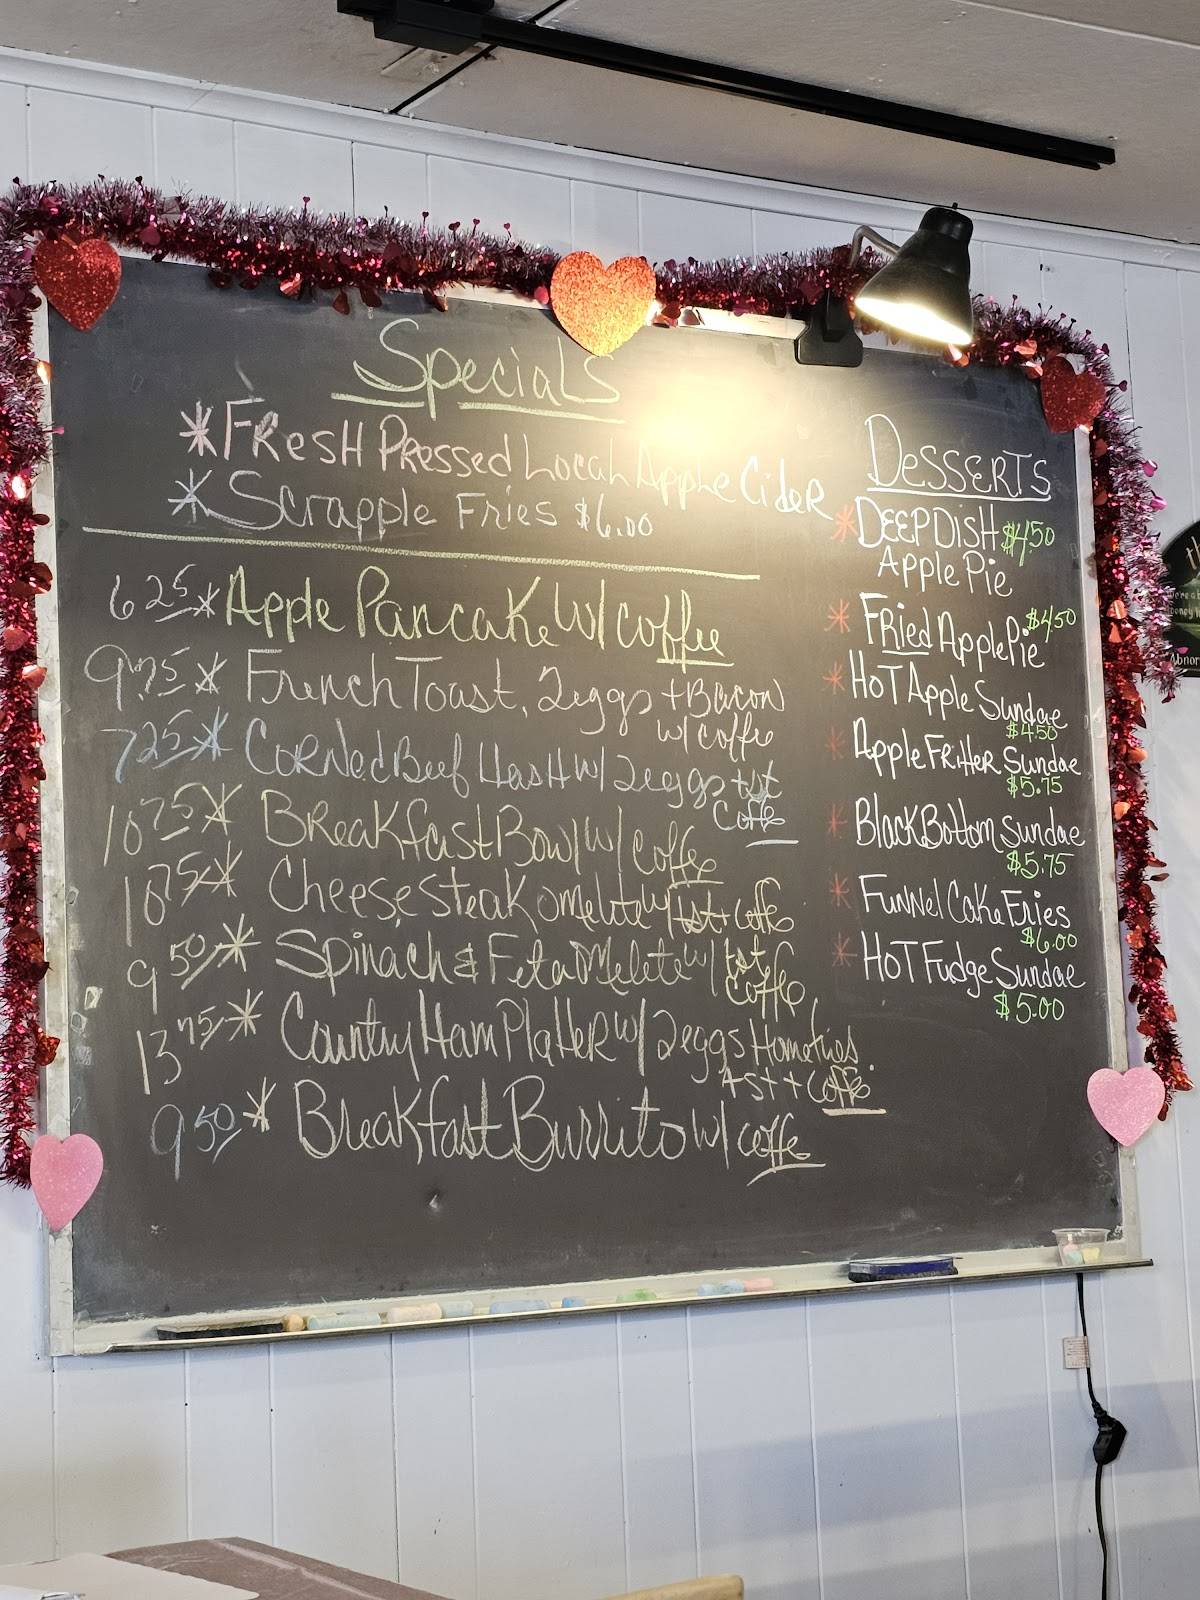 Specials
*Fresh Pressed Local Apple Cider
*Scrapple Fries $6.00
6 25 * Apple Pancake w/ coffee
9.75 * French Toast, 2 eggs + Bacon
w/ coffee
7 25 * Corned Beef Hash w/ 2 eggs tst
Coffee
10 75 * Breakfast Bowl w/ coffee
10 75 * Cheesesteak omelete w/ tst + coffee
9 50 * Spinach & Feta Omelete w/ tst
coffee
13 75 * Country Ham Platter w/ 2 eggs Homefries
tst + coffee
9 50 * Breakfast Burrito w/ coffee
Desserts
* DEEP DISH $4.50
Apple Pie
* Fried Apple Pie $4.50
* HOT Apple Sundae
$4.50
* Apple Fritter Sundae
$5.75
* Black Bottom Sundae
$5.75
* Funnel Cake Fries
$6.00
* HOT Fudge Sundae
$5.00